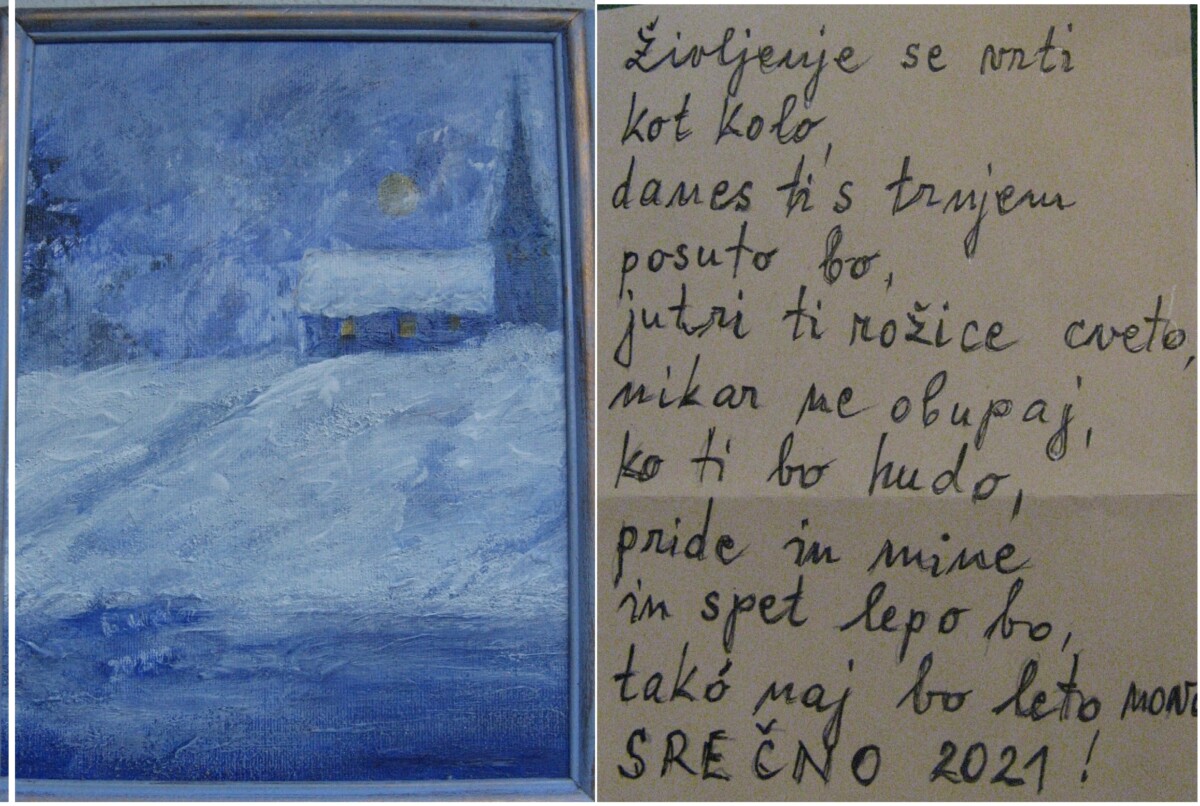 Življenje se vrti
kot kolo,
danes ti s trnjem
posuto bo,
jutri ti rožice cveto,
nikar ne obupaj,
ko ti bo hudo,
pride in mine
in spet lepo bo,
takó naj bo leto
SREČNO 2021!